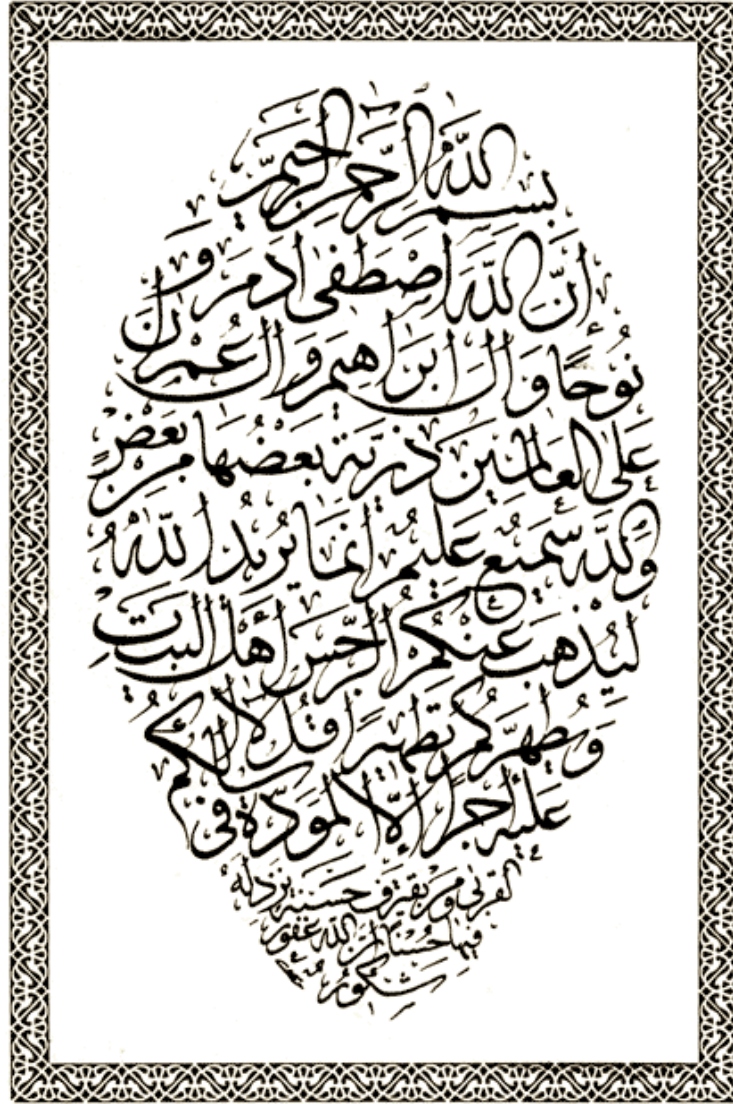 بسم الله الرحمن الرحيم
إن الله اصطفى آدم و
نوحا وآل ابراهيم وآل عمران
على العالمين ذرية بعضها من بعض
والله سميع عليم انما يريد الله
ليذهب عنكم الرجس أهل البيت
ويطهركم تطهيرا قل لا أسألكم
عليه أجرا إلا المودة في
القربى ومن يقترف حسنة نزد له
فيها حسنا إن الله غفور
شكور